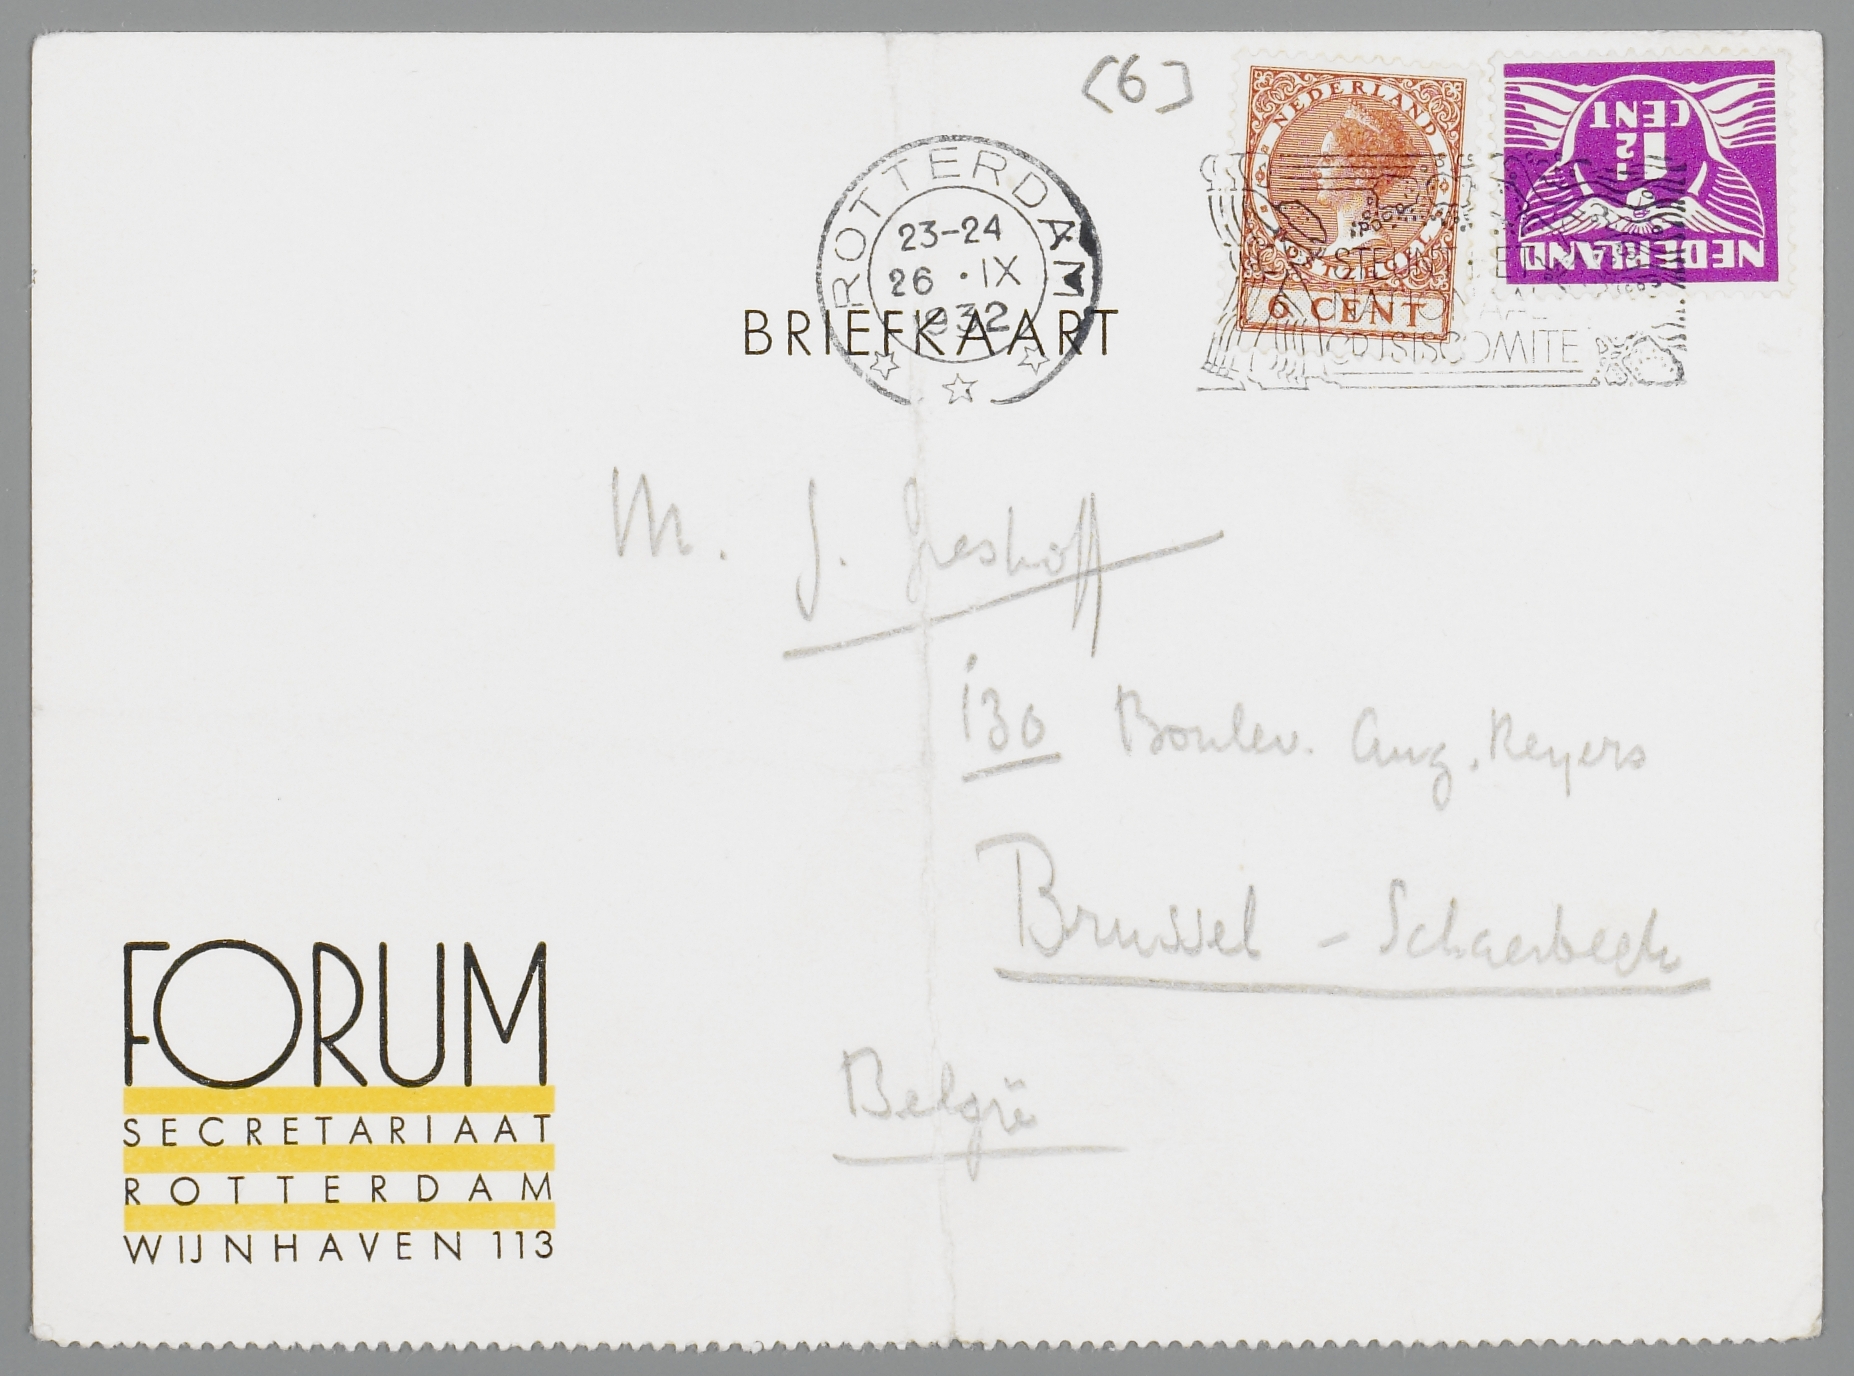 (6)
NEDERLAND
6 CENT
1½ CENT
NEDERLAND
ROTTERDAM
23-24
26 · IX
1932
STEUNT HET
NATIONAAL
CRISISCOMITE
BRIEFKAART
M. J. Greshoff
130 Boulev. Aug. Reyers
Brussel - Schaerbeek
België
FORUM
SECRETARIAAT
ROTTERDAM
WIJNHAVEN 113